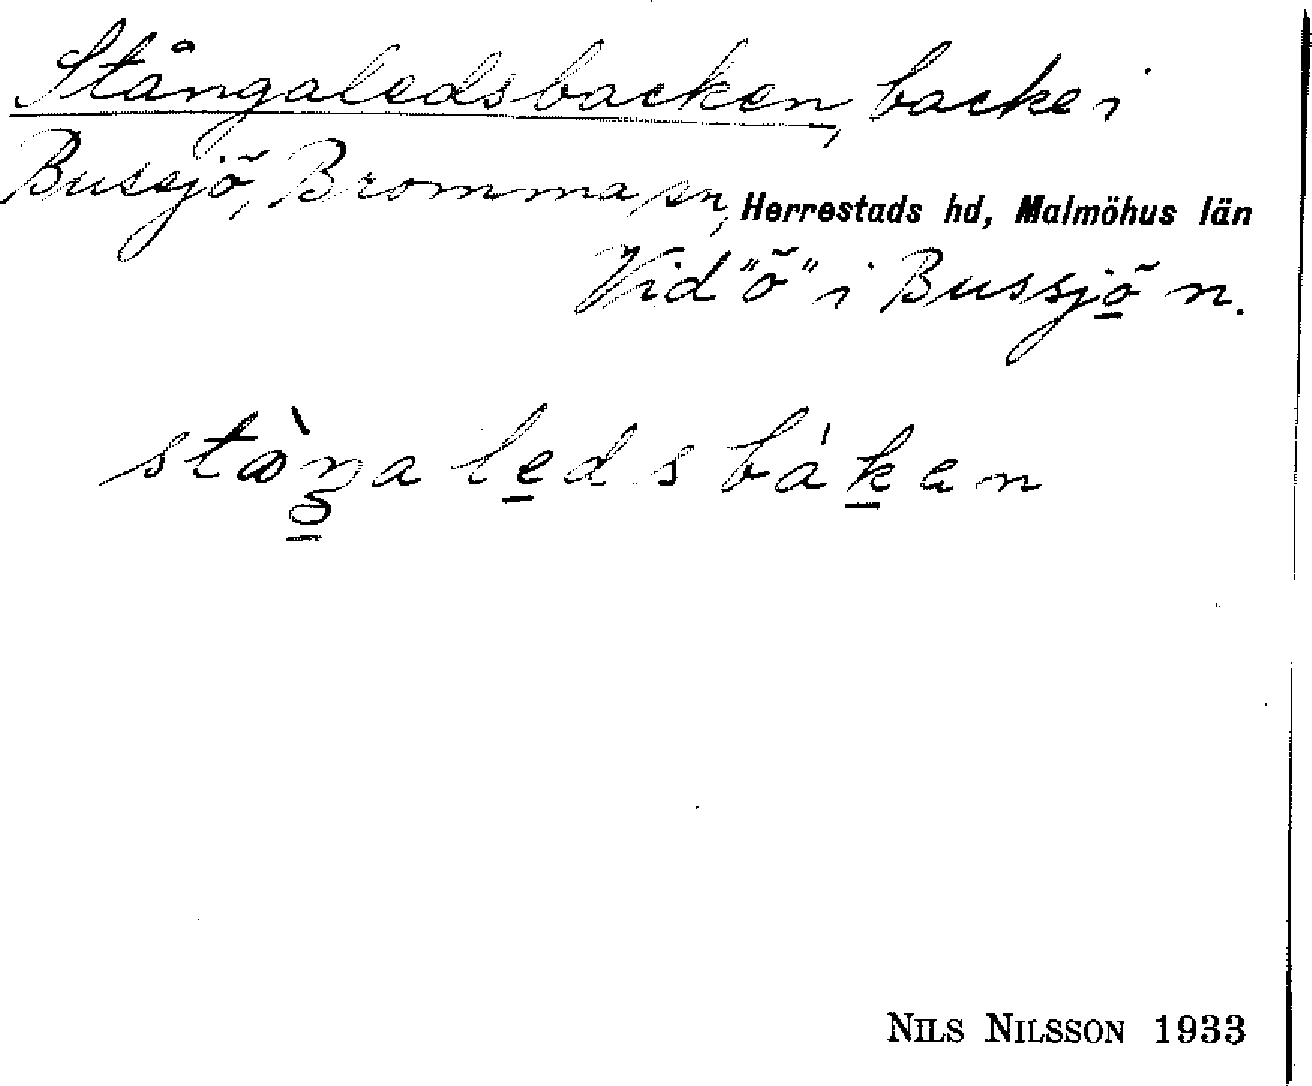 Stångaledsbacken, backe i
Bussjö, Bromma sn, Herrestads hd, Malmöhus län
Vid "ö" i Bussjön.
stàŋaledsbákan
NILS NILSSON 1933